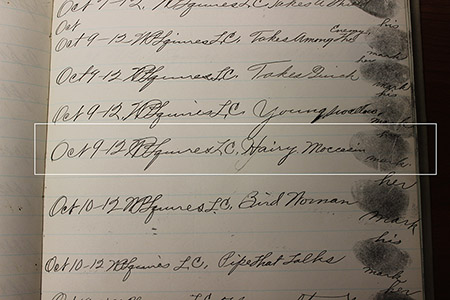 Oct 9-12 Takes A
his
Oct
Oct 9-12 WB Squires L.C. Takes Among The Enemy
mark
her
Oct 9-12 WB Squires L.C. Takes Quick
mark
his
Oct 9-12 WB Squires L.C. Young
mark
Oct 9-12 WB Squires L.C. Hairy Moccasin
mark
her
Oct 10-12 WB Squires L.C. Bird Woman
mark
his
Oct 10-12 WB Squires L.C. Pipe That Talks
mark
her